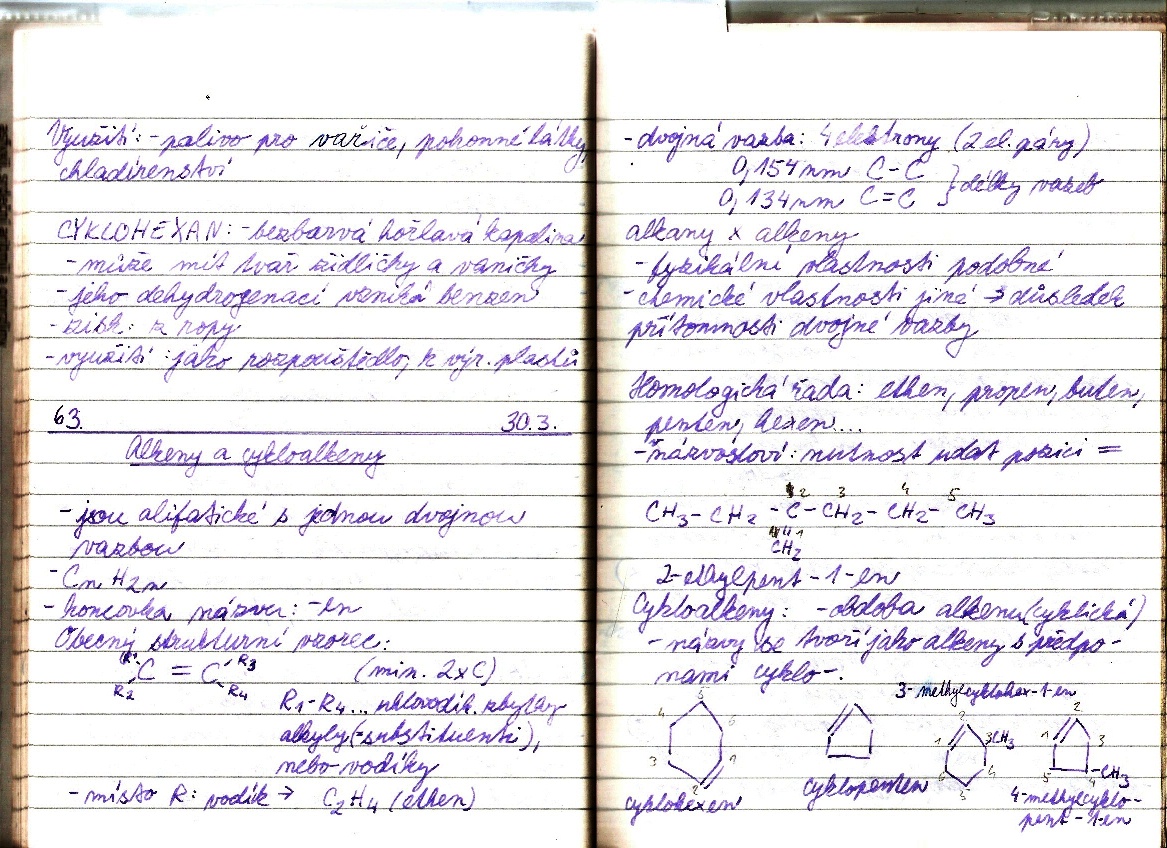 Využití: - palivo pro vařiče, pohonné látky,
chladírenství
CYKLOHEXAN: - bezbarvá hořlavá kapalina
- může mít tvar židličky a vaničky
- jeho dehydrogenací vzniká benzen
- zisk: z ropy
- využití: jako rozpouštědlo, k výr. plastů
63. 30.3.
Alkeny a cykloalkeny
- jsou alifatické s jednou dvojnou
vazbou
- CnH2n
- koncovka názvu: -en
Obecný strukturní vzorec:
R1 C = C R3 (min. 2xC)
R2 R4
R1-R4... uhlovodík. zbytky
alkyly (-substituenti),
nebo vodíky
- místo R: vodík → C2H4 (ethen)
- dvojná vazba: 4 elektrony (2 el. páry)
0,154nm C-C
0,134nm C=C } délky vazeb
alkany x alkeny
- fyzikální vlastnosti podobné
- chemické vlastnosti jiné → důsledek
přítomnosti dvojné vazby
Homologická řada: ethen, propen, buten,
penten, hexen...
- názvosloví: nutnost udat pozici =
2 3 4 5
CH3 - CH2 - C - CH2 - CH2 - CH3
1
CH2
2-ethylpent-1-en
Cykloalkeny: - obdoba alkenu (cyklická)
- názvy se tvoří jako alkeny s předpo-
nami cyklo-.
3-methylcyklohex-1-en
5 4 6 3 1 2
cyklohexen
cyklopenten
2 1 3 CH3 6 4 5
2 1 3 5 4 -CH3
4-methylcyklo-
pent-1-en